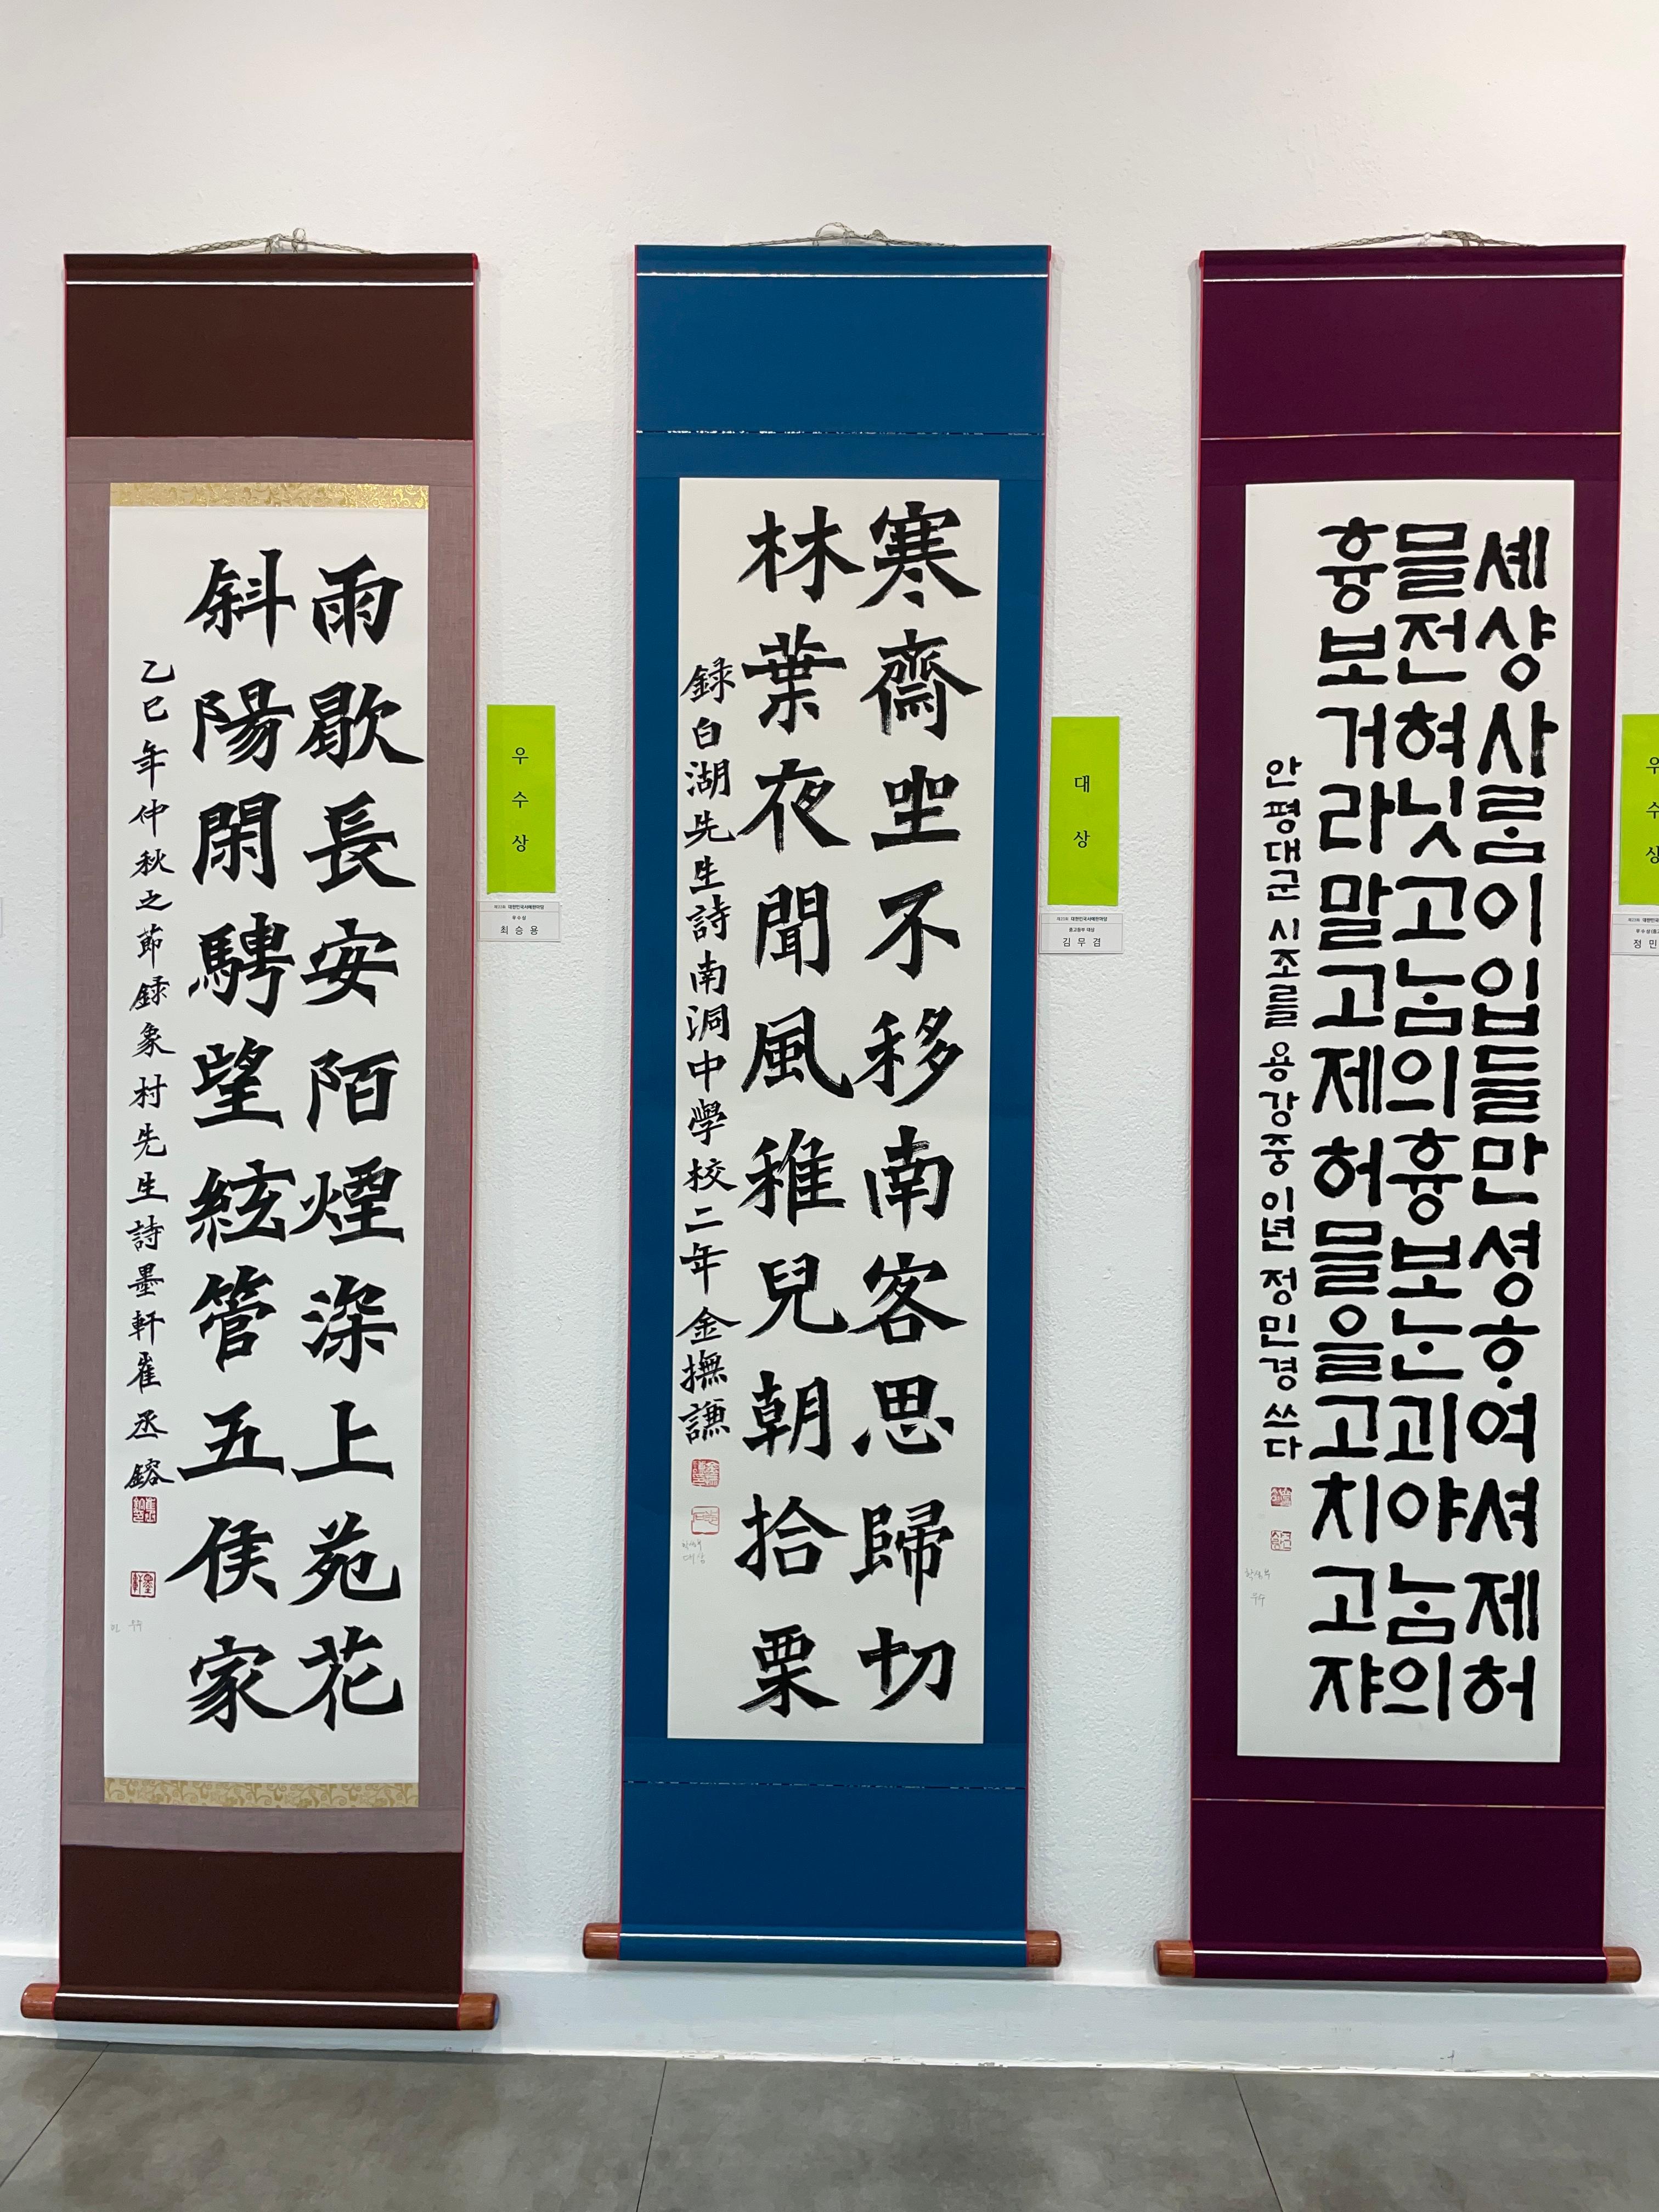 雨歇長安陌煙深上苑花
斜陽閑騁望絃管五侯家
乙巳年仲秋之節録象村先生詩墨軒崔丞鎔
우수상
제23회 대한민국서예한마당
우수상
최승용
寒齋坐不移南客思歸切
林葉夜聞風稚兒朝拾栗
録白湖先生詩南洞中學校二年金撫謙
대상
제23회 대한민국서예한마당
중고등부 대상
김무겸
셰샹사ᄅᆞᆷ이입들만셩ᄒᆞ여셔제허
믈전혀닛고ᄂᆞᆷ의흉보ᄂᆞᆫ괴야ᄂᆞᆷ의
흉보거라말고제허믈을고치고쟈
안평대군 시조를 용강중 이년 정민경 쓰다
우수상
정민